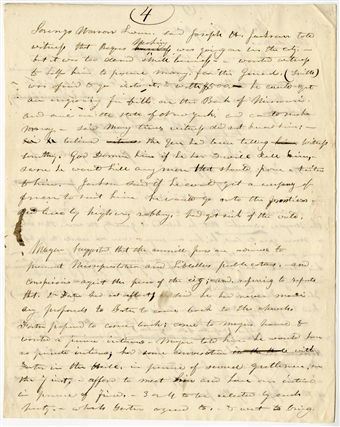 (4)
Lorenzo Wasson Sworn, said Joseph H. Jackson told
witness that Rogues was going on in the city—
but it was too small business — wanted witness
to help him to procure money, for the General (Smith)
was afraid to go into it, & with $500 he could get
an engraving for bills on the Bank of Missouri
and one on the State of New York, and could make
money — said many times witness did not know him,—
he believed the Gen had been telling witness
something. God Damn him if he has I will kill him,
swore he would kill any man that should prove a traitor
to him. — Jackson said if he could get a company of
men to suit him he would go into the frontiers
and live by highway robbery. had got sick of the world.
Mayor suggested that the council pass an ordinance to
prevent Misrepresentation and Libellous publications, and
conspiracies against the peace of the city; and referring to reports
that Dr. Foster had set afloat said he had never made
any proposals to Foster to come back to the church.
Foster proposed to come back; came to Mayors house &
wanted a private interview. Mayor told him he would have
no private interview, had some conversation with
Foster in the Hall, in presence of several gentlemen, on
the 7 inst; — offered to meet him and have an interview
in presence of friends, — 3 or 4 to be selected by each
party, — which Foster agreed to, & went to bring